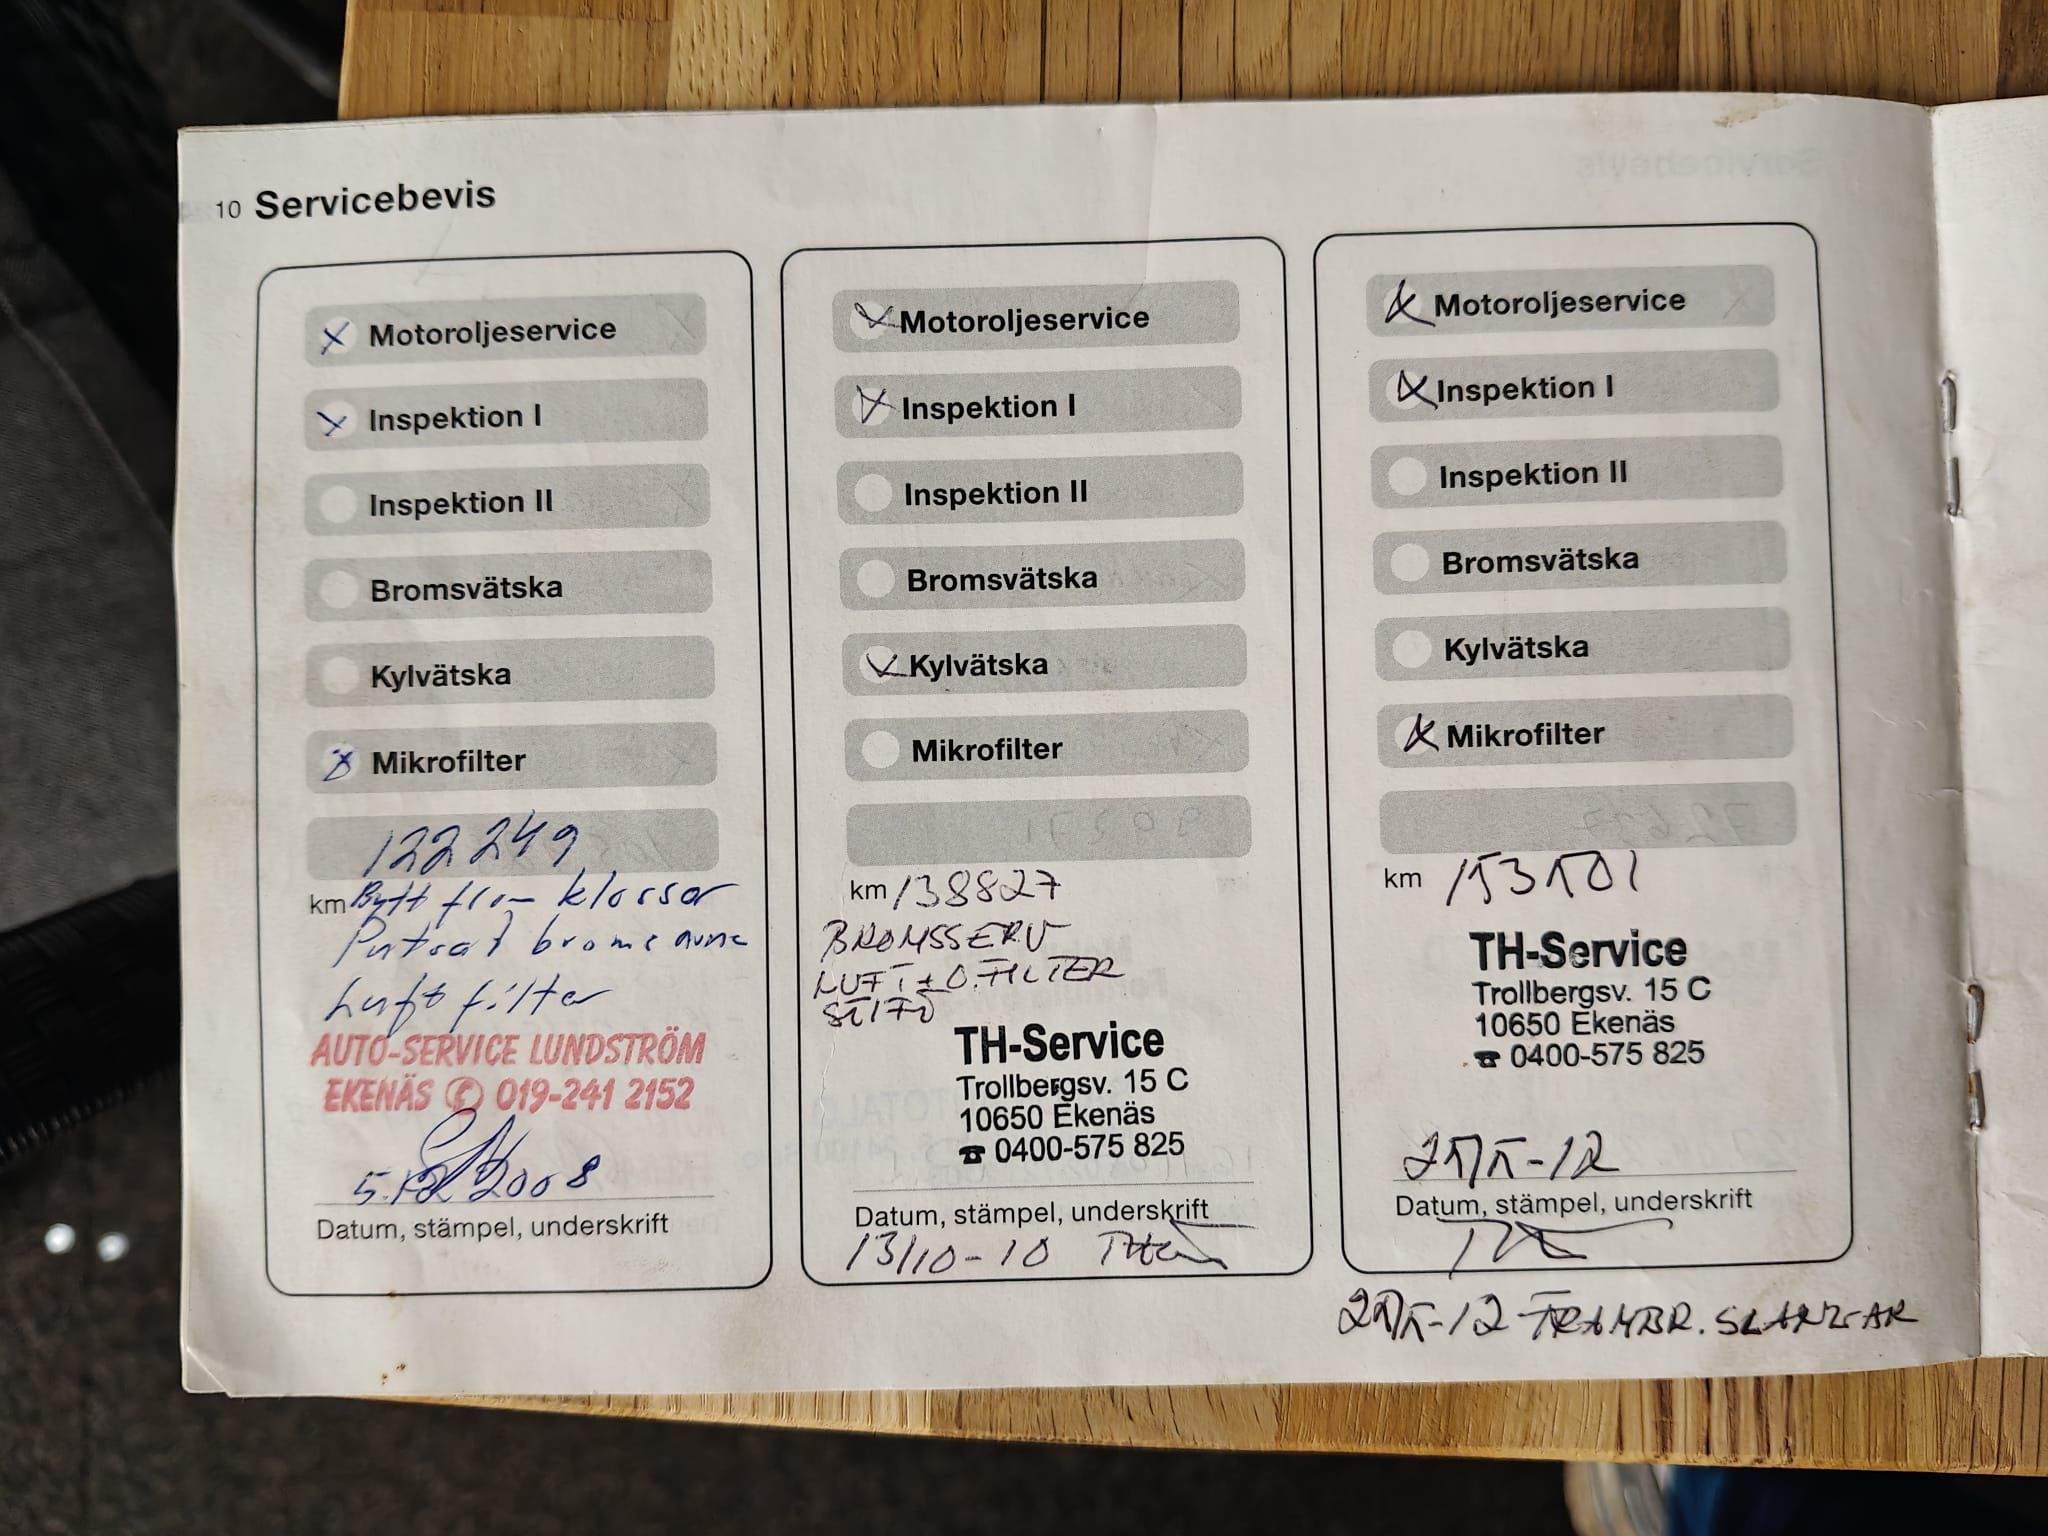 10 Servicebevis
Motoroljeservice
Inspektion I
Inspektion II
Bromsvätska
Kylvätska
Mikrofilter
122 249
km Bytt fram klossar
Putsat broms arna
Luft filter
AUTO-SERVICE LUNDSTRÖM
EKENÄS ✆ 019-241 2152
5.12 2008
Datum, stämpel, underskrift
Motoroljeservice
Inspektion I
Inspektion II
Bromsvätska
Kylvätska
Mikrofilter
km 138827
BROMSSERV
LUFT + O.FILTER
TH-Service
Trollbergsv. 15 C
10650 Ekenäs
☎ 0400-575 825
Datum, stämpel, underskrift
13/10-10
Motoroljeservice
Inspektion I
Inspektion II
Bromsvätska
Kylvätska
Mikrofilter
km 153501
TH-Service
Trollbergsv. 15 C
10650 Ekenäs
☎ 0400-575 825
Datum, stämpel, underskrift
FRAMBR. SLANGAR